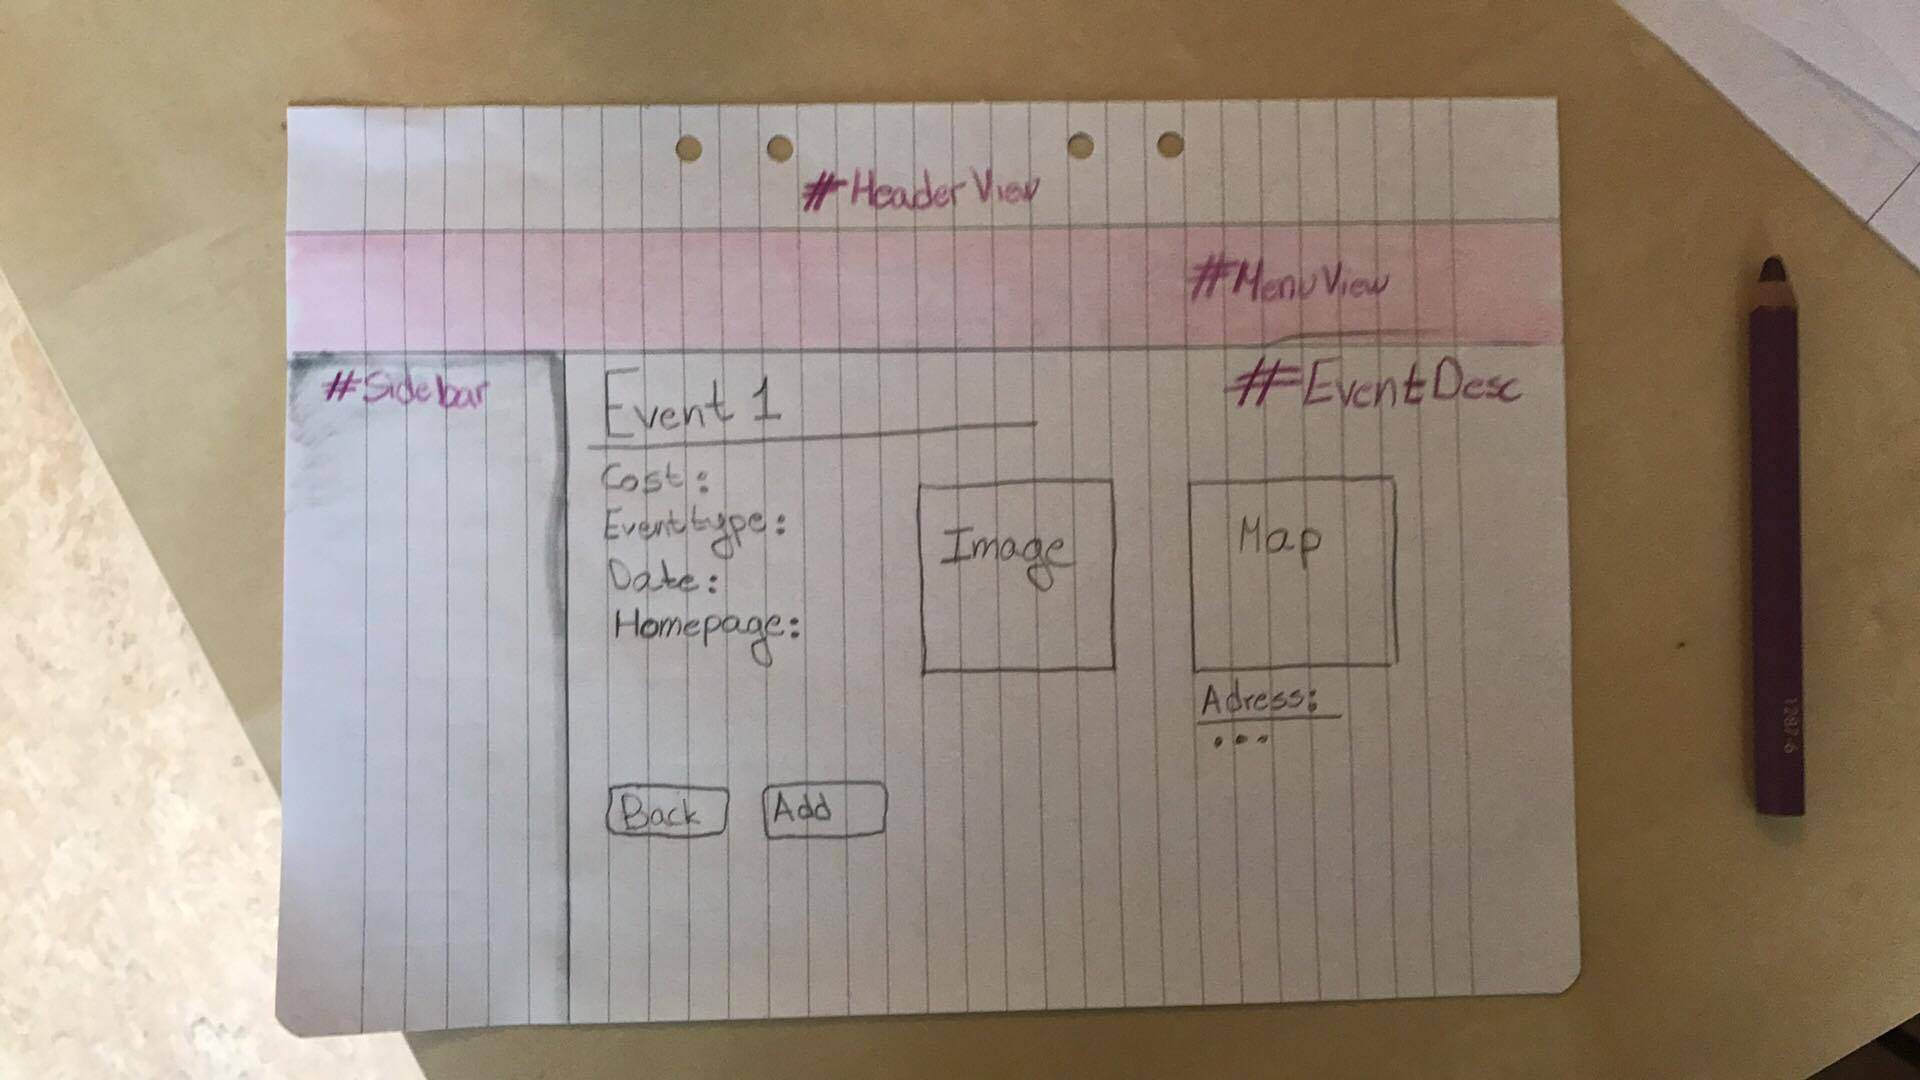 #HeaderView
#MenuView
#Sidebar
Event 1
#EventDesc
Cost:
Eventtype:
Date:
Homepage:
Image
Map
Adress:
...
Back
Add
1287-6